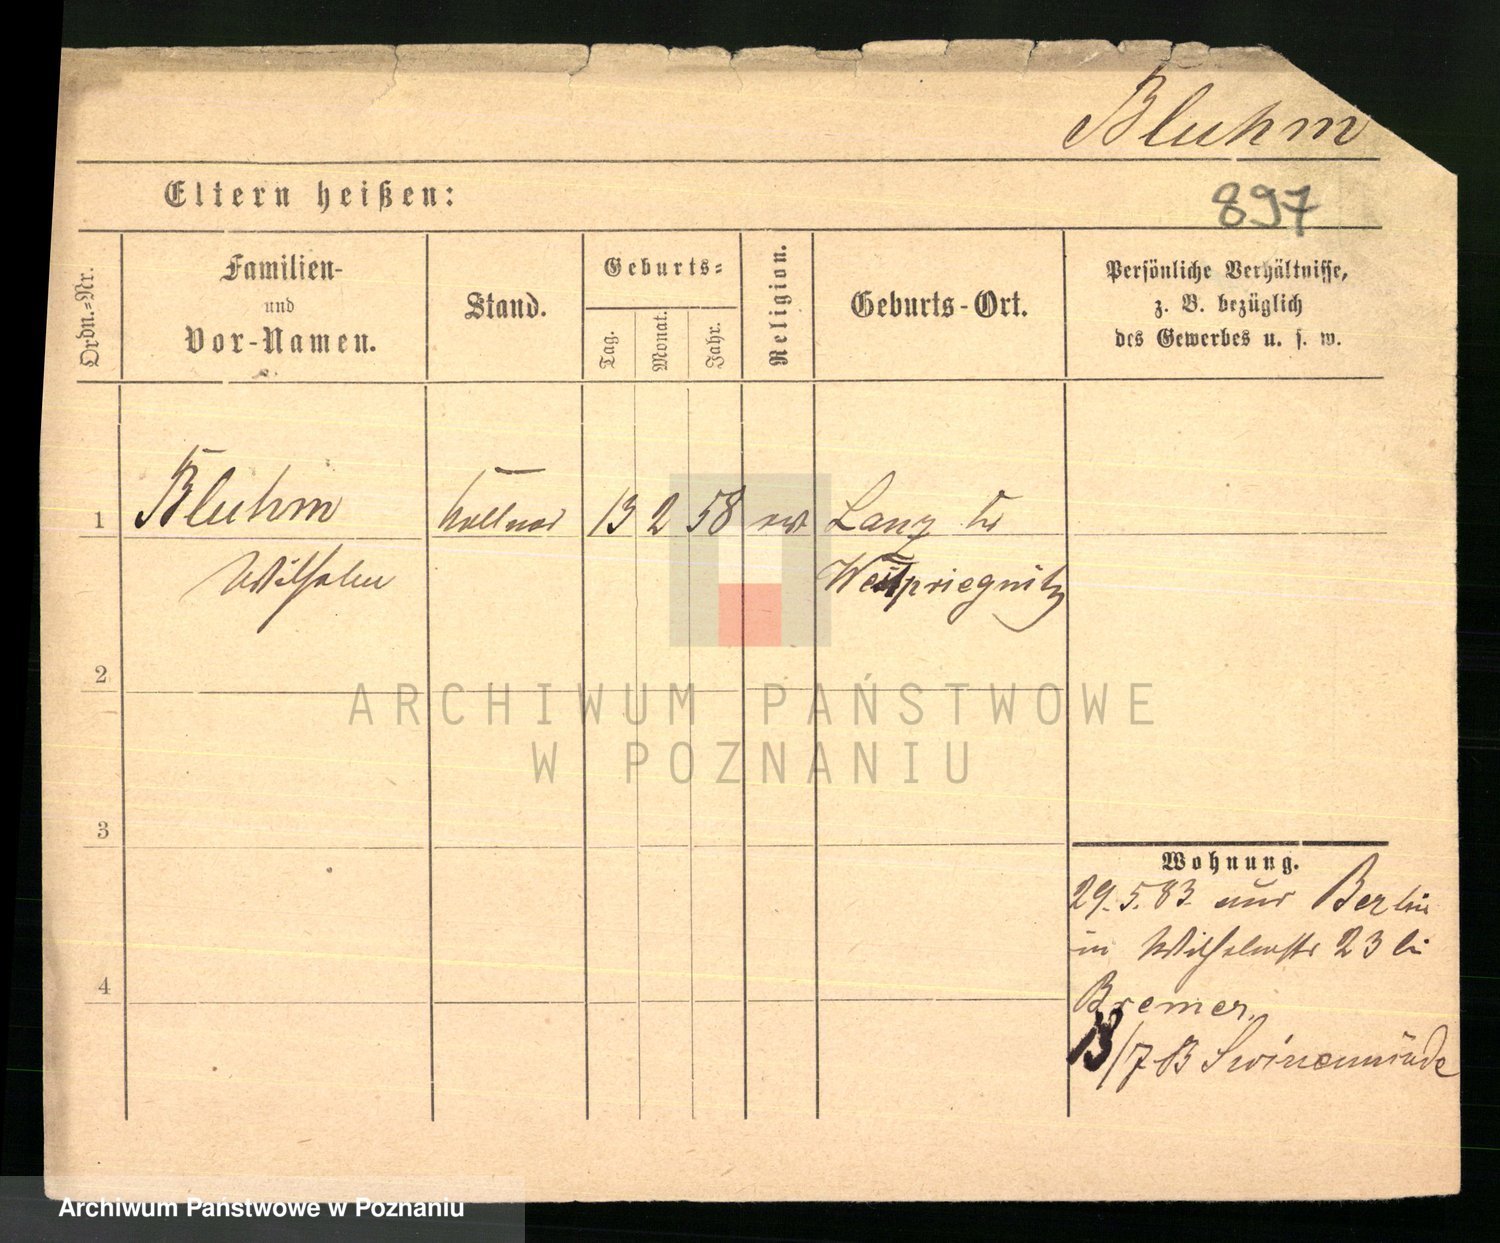 Bluhm
897
Eltern heißen:
Ordn.-Nr.
Familien-
und
Vor-Namen.
Stand.
Geburts-
Tag.
Monat.
Jahr.
Religion.
Geburts-Ort.
Persönliche Verhältnisse,
z. B. bezüglich
des Gewerbes u. s. w.
1 Bluhm Kellner 13 2 58 Lanz Kr
Wilhelm Westpriegnitz
2
3
4
Wohnung.
29.5.83 aus Berlin
in Wilhelmstr 23 bei
Bremer.
13/7 83 Swinemünde
ARCHIWUM PAŃSTWOWE
W POZNANIU
Archiwum Państwowe w Poznaniu